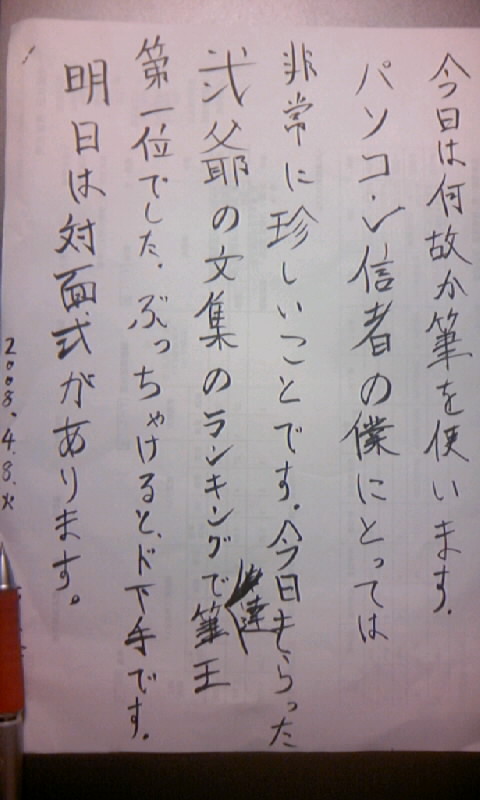 今日は何故か筆を使います。
パソコン信者の僕にとっては
非常に珍しいことです。今日もらった
弐父耶の文集のランキングで筆王
達
第一位でした。ぶっちゃけると、ド下手です。
明日は対面式があります。
2008.4.8.火